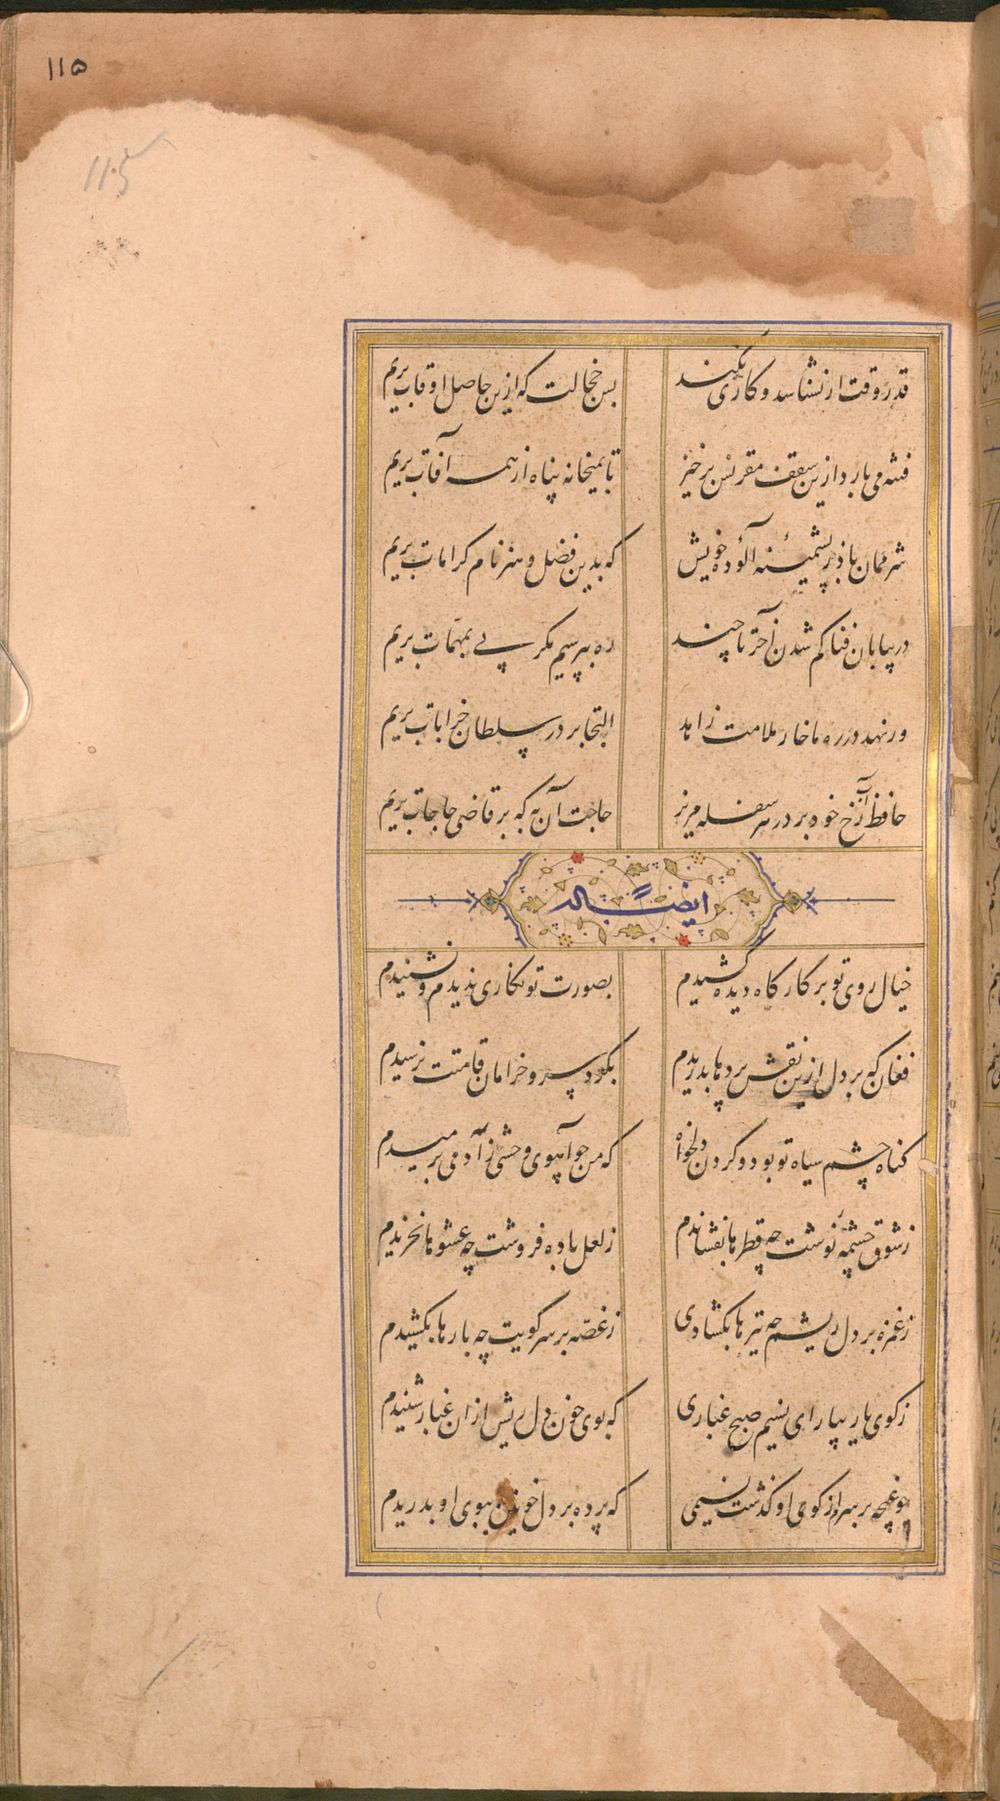 ۱۱۵
115
قدر وقت ار نشناسد و کاری نکند
بس خجالت که ازین حاصل اوقات بریم
فتنه می بارد ازین سقف مقرنس برخیز
تا بمیخانه پناه از همه آفات بریم
شرممان باد ز پشمینه آلوده خویش
که بدین فضل و هنر نام کرامات بریم
در بیابان فنا کم شدن آخر تا چند
ره بپرسیم مکر پی بمهمات بریم
ور نهد در ره ما خار ملامت زاهد
التجا بر در سلطان خرابات بریم
حافظ آب رخ خود بر در هر سفله مریز
حاجت آن به که بر قاضی حاجات بریم
ایضاً له
خیال روی تو بر کارکاه دیده کشیدم
بصورت تو نکاری ندیدم و نشنیدم
فغان که بر دل ازین نقش پردها بدریدم
بکرد سرو خرامان قامتت نرسیدم
کناه چشم سیاه تو بود و کردن دلخواه
که من چو آهوی وحشی ز آدمی برمیدم
ز شوق چشمه نوشت چه قطرها بفشاندم
ز لعل باده فروشت چه عشوها نخریدم
ز غمزه بر دل ریشم چه تیرها بکشادی
ز غصه بر سر کویت چه بارها بکشیدم
ز کوی یار بیار ای نسیم صبح غباری
که بوی خون دل ریش ازان غبار شنیدم
چو غنچه بر سرم از کوی او کذشت نسیمی
که پرده بر دل خونین ببوی او بدریدم